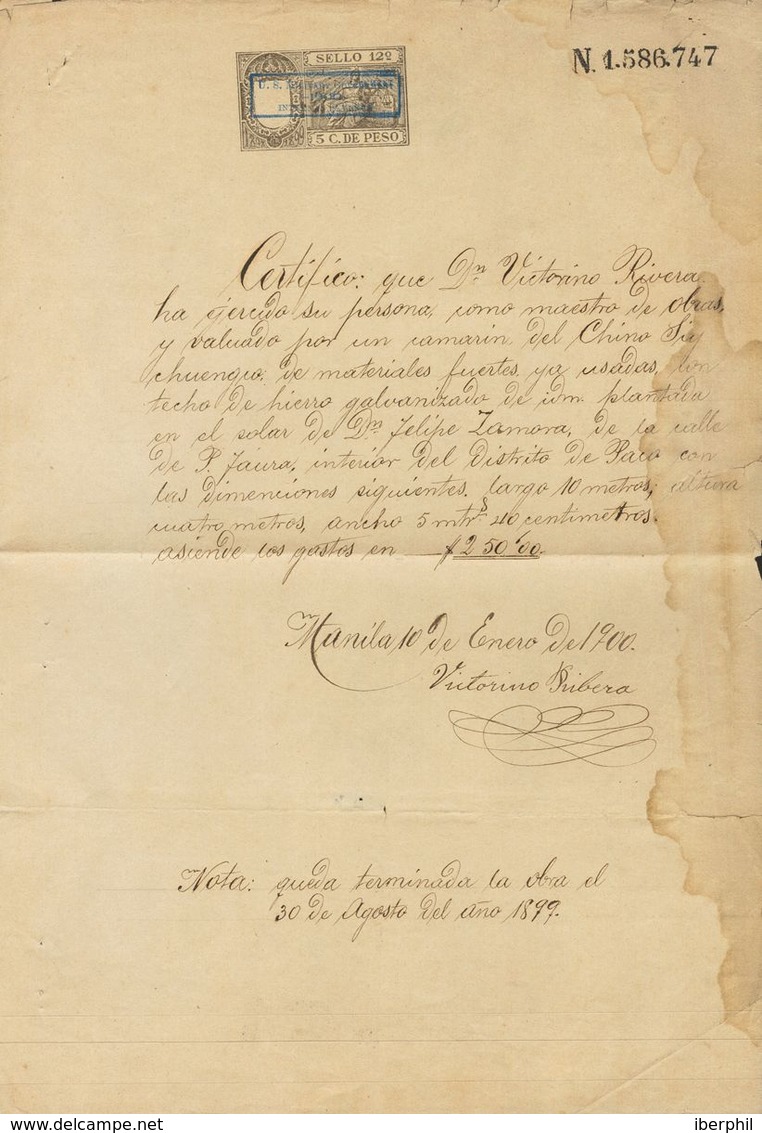 SELLO 12º
N. 1.586.747
5 C. DE PESO
Certifico: que Dn Victorino Rivera
ha gercido su persona, como maestro de obras,
y valuado por un camarin del Chino Siy
chuengco, de materiales fuertes ya usadas, con
techo de hierro galvanizado de idm. plantada
en el solar de Dn Felipe Zamora, de la calle
de P. Faura, interior del Distrito de Paco con
las dimenciones siguientes. largo 10 metros; altura
cuatro metros, ancho 5 mtrs 40 centimetros.
asiende los gastos en $250'00.
Manila 10 de Enero de 1900.
Victorino Ribera
Nota: queda terminada la obra el
30 de Agosto del año 1899.
delcampe.net
iberphil